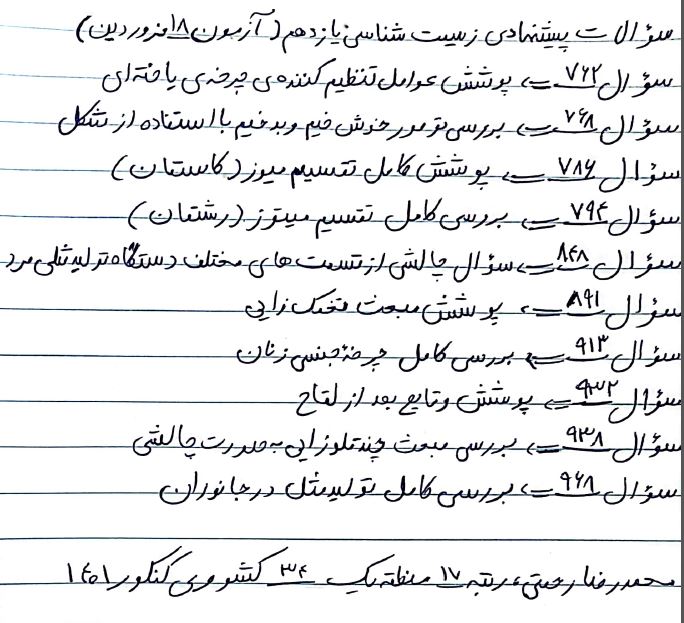 سؤالات پیشنهادی زیست شناسی یازدهم (آزمون ۱۸ فروردین)
سؤال ۷۶۲ => پوشش عوامل تنظیم کننده‌ی چرخه‌ی یاخته‌ای
سؤال ۷۶۸ => بررسی تومور خوش خیم و بدخیم با استفاده از شکل
سؤال ۷۸۶ => پوشش کامل تقسیم میوز (کاستمان)
سؤال ۷۹۴ => بررسی کامل تقسیم میتوز (رشتمان)
سؤال ۸۴۸ => سؤال چالشی از قسمت های مختلف دستگاه تولید مثلی مرد
سؤال ۸۹۱ => پوشش مبحث تخمک زایی
سؤال ۹۱۳ => بررسی کامل چرخهٔ جنسی زنان
سؤال ۹۳۲ => پوشش وقایع بعد از لقاح
سؤال ۹۳۸ => بررسی مبحث چندقلوزایی به صورت چالشی
سؤال ۹۶۸ => بررسی کامل تولیدمثل در جانوران
محمدرضا رحمتی، رتبه ۱۷ منطقه یک ۳۴ کشوری کنکور ۱۴۰۱